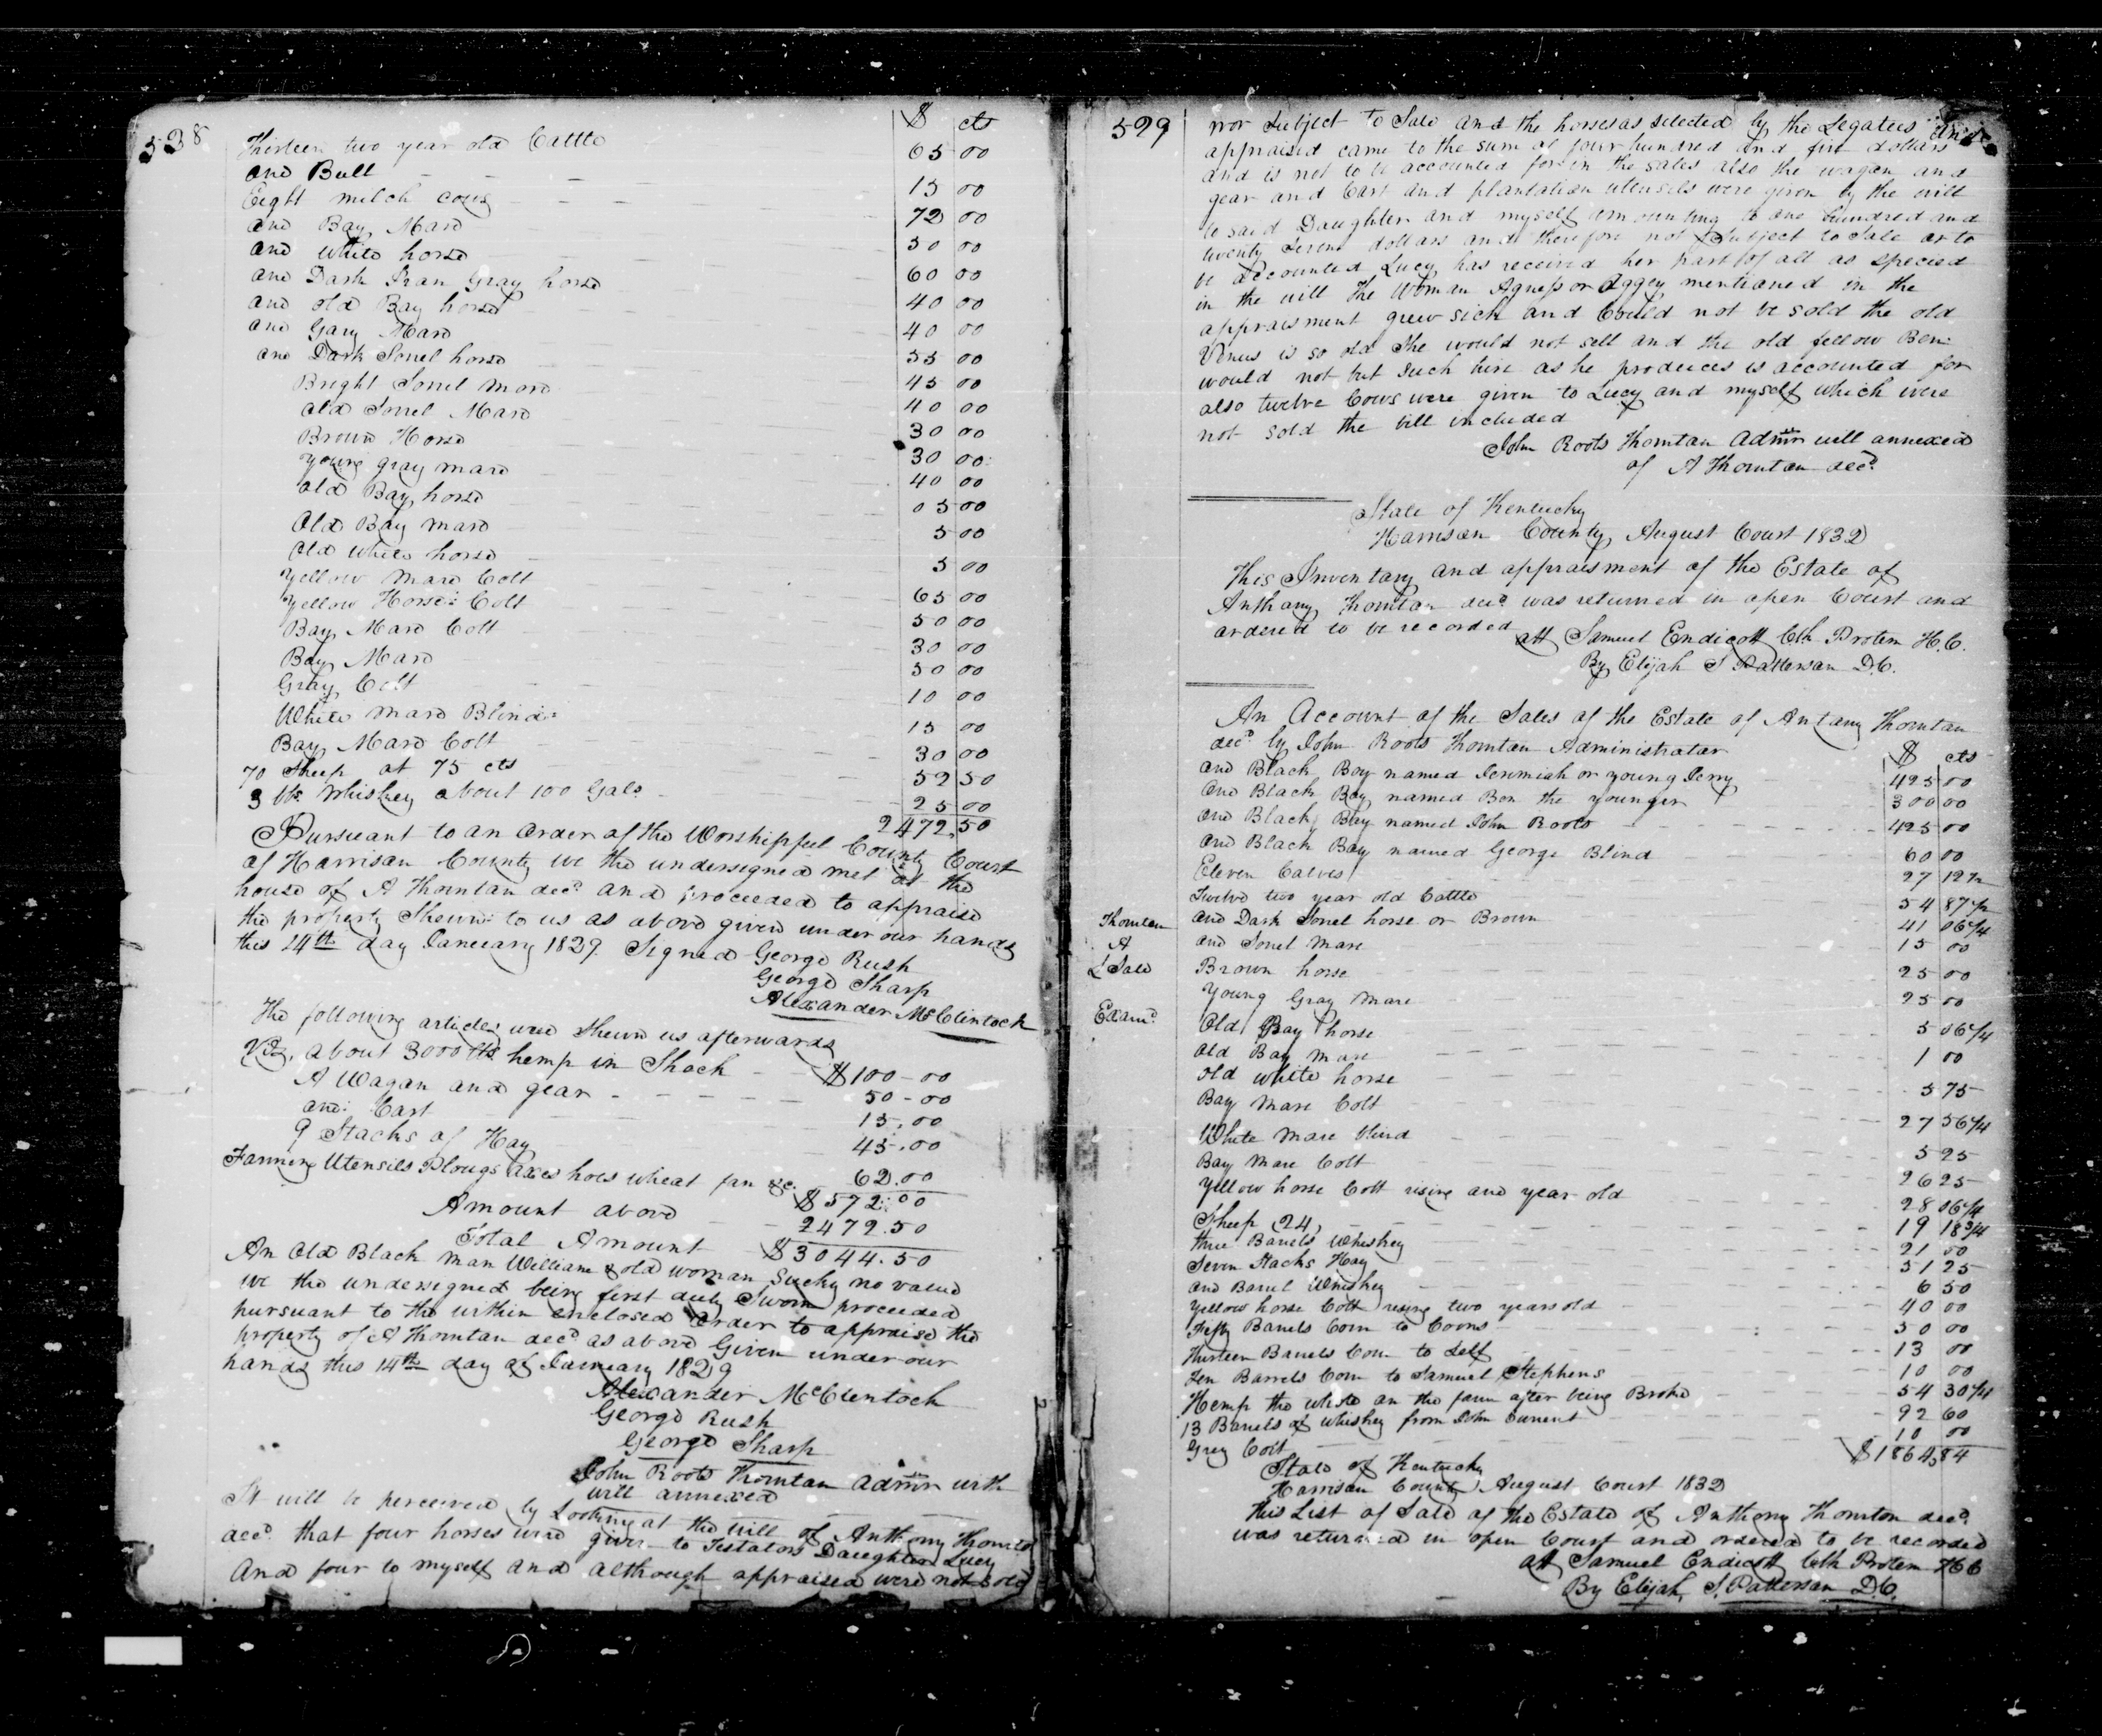 538
$ cts
Thirteen two year old Cattle 65 00
one Bull 15 00
Eight milch cows 72 00
one Bay Mare 50 00
one white horse 60 00
one Dark Iran Gray horse 40 00
one old Bay horse 40 00
one Gary Mare 55 00
one Dark Sorrel horse 45 00
Bright Sorrel mare 40 00
old Sorrel Mare 30 00
Brown Horse 30 00
young gray mare 40 00
old Bay horse 05 00
Old Bay mare 5 00
Old white horse 5 00
Yellow Mare Colt 65 00
Yellow Horse Colt 50 00
Bay Mare Colt 30 00
Bay Mare 50 00
Gray Colt 10 00
White mare Blind 15 00
Bay Mare Colt 30 00
70 Sheep at 75 cts 52 50
3 bls Whiskey about 100 Gals 25 00
2472,50
Pursuant to an order of the Worshipfeel County Court
of Harrison County we the undersigned met at the
house of A Thorntan decd and proceeded to appraise
the property Shewn to us as above given under our hands
this 24th day January 1829. Signed George Rush
George Sharp
Alexander McClintock
The following articles were Shewn us afterwards
Viz, about 3000 lbs hemp in Shock $100-00
A Wagan and gear 50-00
one Cart 15,00
9 Stacks of Hay 45.00
Farming Utensils Plougs axes hoes wheat fan &c. 62.00
$572.00
Amount above 2472.50
Total Amount $3044.50
An Old Black man William & old woman Suchy no value
we the undersigned being first duly Sworn proceeded
pursuant to the within enclosed order to appraise the
property of A Thorntan decd as above Given under our
hands this 14th day of January 1829
Alexander McClentock
George Rush
George Sharp
John Roots Thorntan Admr with
will annexed
It will be perceived by Looking at the will of Anthony Thornton
decd that four horses were given to Testators Daughter Lucy
And four to myself and although appraised were not sold
599
nor Subject to Sale and the horses as selected by the Legatees and
appraised came to the sum of four hundred and five dollars
and is not to be accounted for in the sales also the wagan and
gear and Cart and plantation utensils were given by the will
to said Daughter and myself amounting to one hundred and
twenty Seven dollars and therefore not Subject to Sale or to
be accounted Lucy has received her part of all as specied
in the will The Woman Agness or Aggey mentioned in the
appraisment grew sick and Could not be sold the old
Venus is so old She would not sell and the old fellow Ben
would not but such hire as he produces is accounted for
also twelve Cows were given to Lucy and myself which were
not sold the bill included
John Roots Thorntan Admr will annexed
of A Thorntan decd
State of Kentucky
Harrison County, August Court 1832
This Inventary and appraisment of the Estate of
Anthany Thorntan decd was returned in open Court and
ordered to be recorded
att Samuel Endicott Clk Protem H.C.
By Elijah S Patterson D.C.
An Account of the Sales of the Estate of Antany Thorntan
decd by John Roots Thorntan Administrator
$ cts
one Black Boy named Jeremiah or young Jerry 425 00
One Black Boy named Ben the younger 300 00
one Black Boy named John Roots 425 00
One Black Boy named George Blind 60 00
Eleven Calves 27 12 1/2
Twelve two year old Cattle 54 87 1/2
Thorntan
A
L Sale
Examd
one Dark Sorrel horse or Brown 41 06 1/4
one Sorrel mare 15 00
Brown horse 25 00
Young Gray mare 25 00
Old Bay horse 5 06 1/4
Old Bay mare 1 00
old white horse 5 75
Bay mare Colt 27 56 1/4
White mare blind 5 25
Bay mare Colt 26 25
Yellow horse Colt rising one year old 28 06 1/4
Sheep (24) 19 18 3/4
three Barrels Whiskey 21 00
Seven Stacks Hay 51 25
one Barrel Whiskey 6 50
Yellow horse Colt rising two years old 40 00
Fifty Barrels Corn to Coons 50 00
Thirteen Barrels Corn to Self 13 00
Ten Barrels Corn to Samuel Stephens 10 00
Hemp the whole on the farm after being Broke 54 30 1/4
13 Barrels of whiskey from John Current 92 60
Grey Colt 10 00
$1864,84
State of Kentucky
Harrison County August Court 1832
This List of Sale of the Estate of Anthony Thornton decd
was returned in open Court and ordered to be recorded
att Samuel Endicott Clk Protem H C
By Elijah S. Patterson D.C.